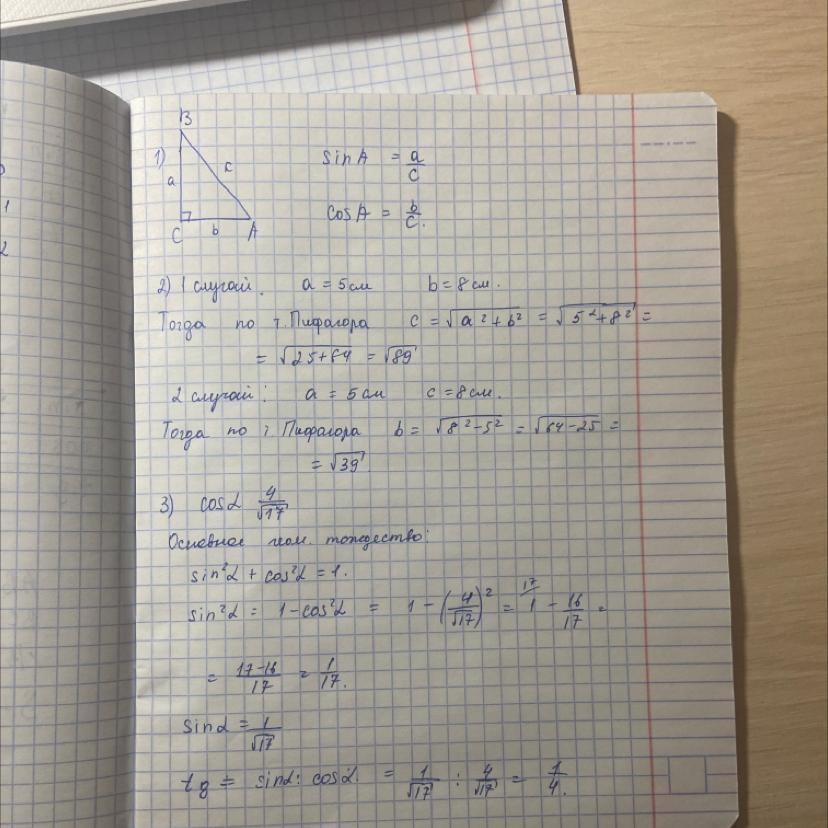 1)
B
a
c
C
b
A
sin A = a/c
cos A = b/c.
2) 1 случай. a = 5 см b = 8 см.
Тогда по т. Пифагора c = √(a² + b²) = √(5² + 8²) =
= √(25+64) = √89
2 случай: a = 5 см c = 8 см.
Тогда по т. Пифагора b = √(8² – 5²) = √(64 – 25) =
= √39
3) cos α 4/√17
Основное геом. тождество:
sin²α + cos²α = 1.
sin²α = 1 – cos²α = 1 – (4/√17)² = 17/1 – 16/17 =
= (17–16)/17 = 1/17.
sin α = 1/√17
tg = sin α : cos α. = 1/√17 : 4/√17 = 1/4.